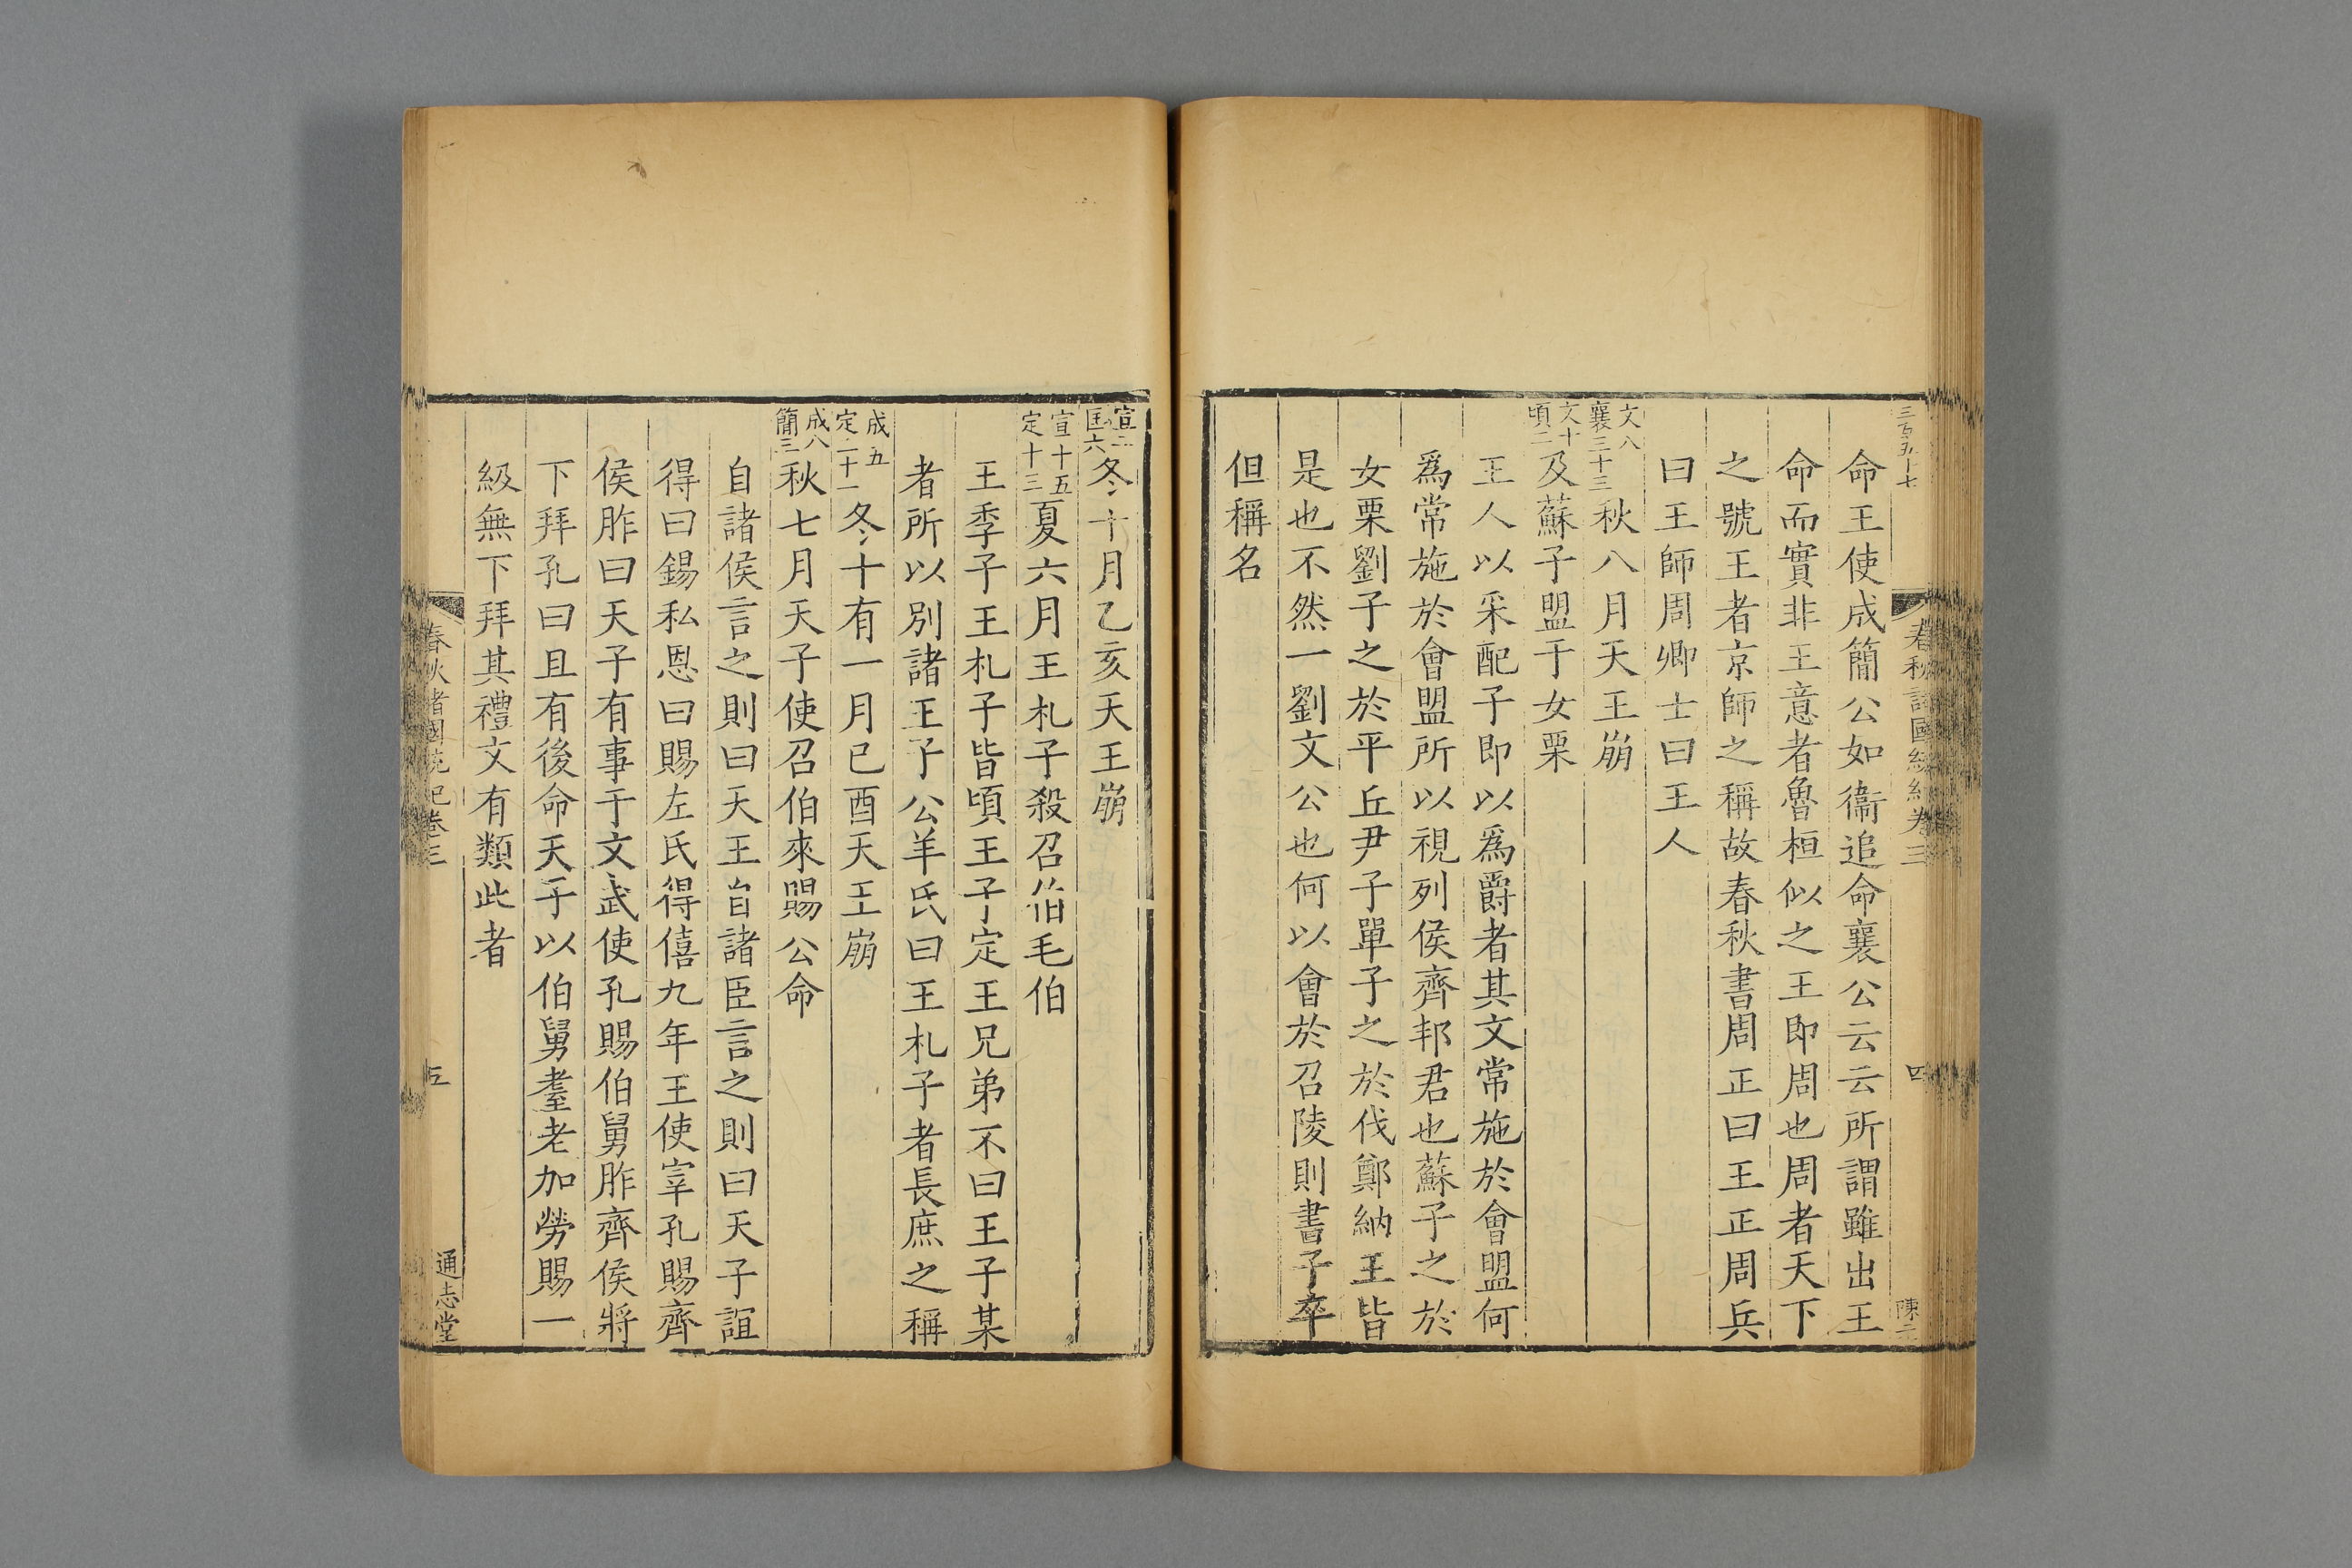 三百五十七
春秋諸國統紀卷三
四
陳
命王使成簡公如衞追命襄公云云所謂雖出王
命而實非王意者魯桓似之王即周也周者天下
之號王者京師之稱故春秋書周正曰王正周兵
曰王師周卿士曰王人
文八
襄三十三
秋八月天王崩
文十
頃二
及蘇子盟于女栗
王人以采配子即以爲爵者其文常施於會盟何
爲常施於會盟所以視列侯齊邦君也蘇子之於
女栗劉子之於平丘尹子單子之於伐鄭納王皆
是也不然一劉文公也何以會於召陵則書子卒
但稱名
宣二
匡六
冬十月乙亥天王崩
宣十五
定十三
夏六月王札子殺召伯毛伯
王季子王札子皆頃王子定王兄弟不曰王子某
者所以別諸王子公羊氏曰王札子者長庶之稱
成五
定二十一
冬十有一月己酉天王崩
成八
簡三
秋七月天子使召伯來賜公命
自諸侯言之則曰天王自諸臣言之則曰天子誼
得曰錫私恩曰賜左氏得僖九年王使宰孔賜齊
侯胙曰天子有事于文武使孔賜伯舅胙齊侯將
下拜孔曰且有後命天子以伯舅耋老加勞賜一
級無下拜其禮文有類此者
春秋諸國統紀卷三
五
通志堂